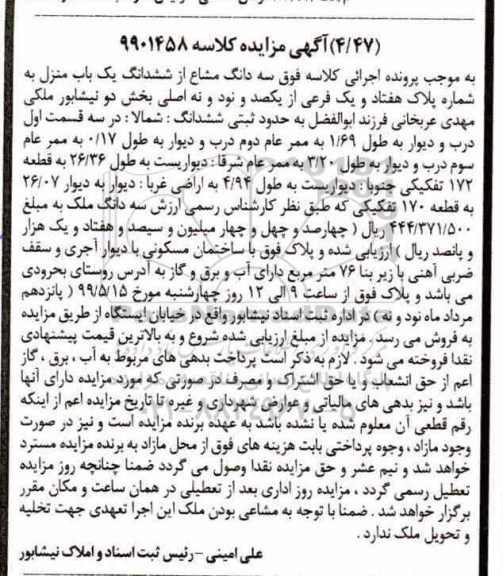 (۴/۴۷) آگهی مزایده کلاسه ۹۹۰۱۴۵۸
به موجب پرونده اجرائی کلاسه فوق سه دانگ مشاع از ششدانگ یک باب منزل به
شماره پلاک هفتاد و یک فرعی از یکصد و نود و نه اصلی بخش دو نیشابور ملکی
مهدی عربخانی فرزند ابوالفضل به حدود ثبتی ششدانگ : شمالا : در سه قسمت اول
درب و دیوار به طول ۱/۶۹ به ممر عام دوم درب و دیوار به طول ۰/۱۷ به ممر عام
سوم درب و دیوار به طول ۳/۲۰ به ممر عام شرقا : دیواریست به طول ۲۶/۳۶ به قطعه
۱۷۲ تفکیکی جنوبا : دیواریست به طول ۴/۹۴ به اراضی غربا : دیوار به دیوار ۲۶/۰۷
به قطعه ۱۷۰ تفکیکی که طبق نظر کارشناس رسمی ارزش سه دانگ ملک به مبلغ
۴۴۴/۳۷۱/۵۰۰ ریال ( چهارصد و چهل و چهار میلیون و سیصد و هفتاد و یک هزار
و پانصد ریال ) ارزیابی شده و پلاک فوق با ساختمان مسکونی با دیوار آجری و سقف
ضربی آهنی با زیر بنا ۷۶ متر مربع دارای آب و برق و گاز به آدرس روستای بحرودی
می باشد و پلاک فوق از ساعت ۹ الی ۱۲ روز چهارشنبه مورخ ۹۹/۵/۱۵ ( پانزدهم
مرداد ماه نود و نه ) در اداره ثبت اسناد نیشابور واقع در خیابان ایستگاه از طریق مزایده
به فروش می رسد . مزایده از مبلغ ارزیابی شده شروع و به بالاترین قیمت پیشنهادی
نقدا فروخته می شود . لازم به ذکر است پرداخت بدهی های مربوط به آب ، برق ، گاز
اعم از حق انشعاب و یا حق اشتراک و مصرف در صورتی که مورد مزایده دارای آنها
باشد و نیز بدهی های مالیاتی و عوارض شهرداری و غیره تا تاریخ مزایده اعم از اینکه
رقم قطعی آن معلوم شده یا نشده باشد به عهده برنده مزایده است و نیز در صورت
وجود مازاد ، وجوه پرداختی بابت هزینه های فوق از محل مازاد به برنده مزایده مسترد
خواهد شد و نیم عشر و حق مزایده نقدا وصول می گردد ضمنا چنانچه روز مزایده
تعطیل رسمی گردد ، مزایده روز اداری بعد از تعطیلی در همان ساعت و مکان مقرر
برگزار خواهد شد . ضمنا با توجه به مشاعی بودن ملک این اجرا تعهدی جهت تخلیه
و تحویل ملک ندارد .
علی امینی – رئیس ثبت اسناد و املاک نیشابور